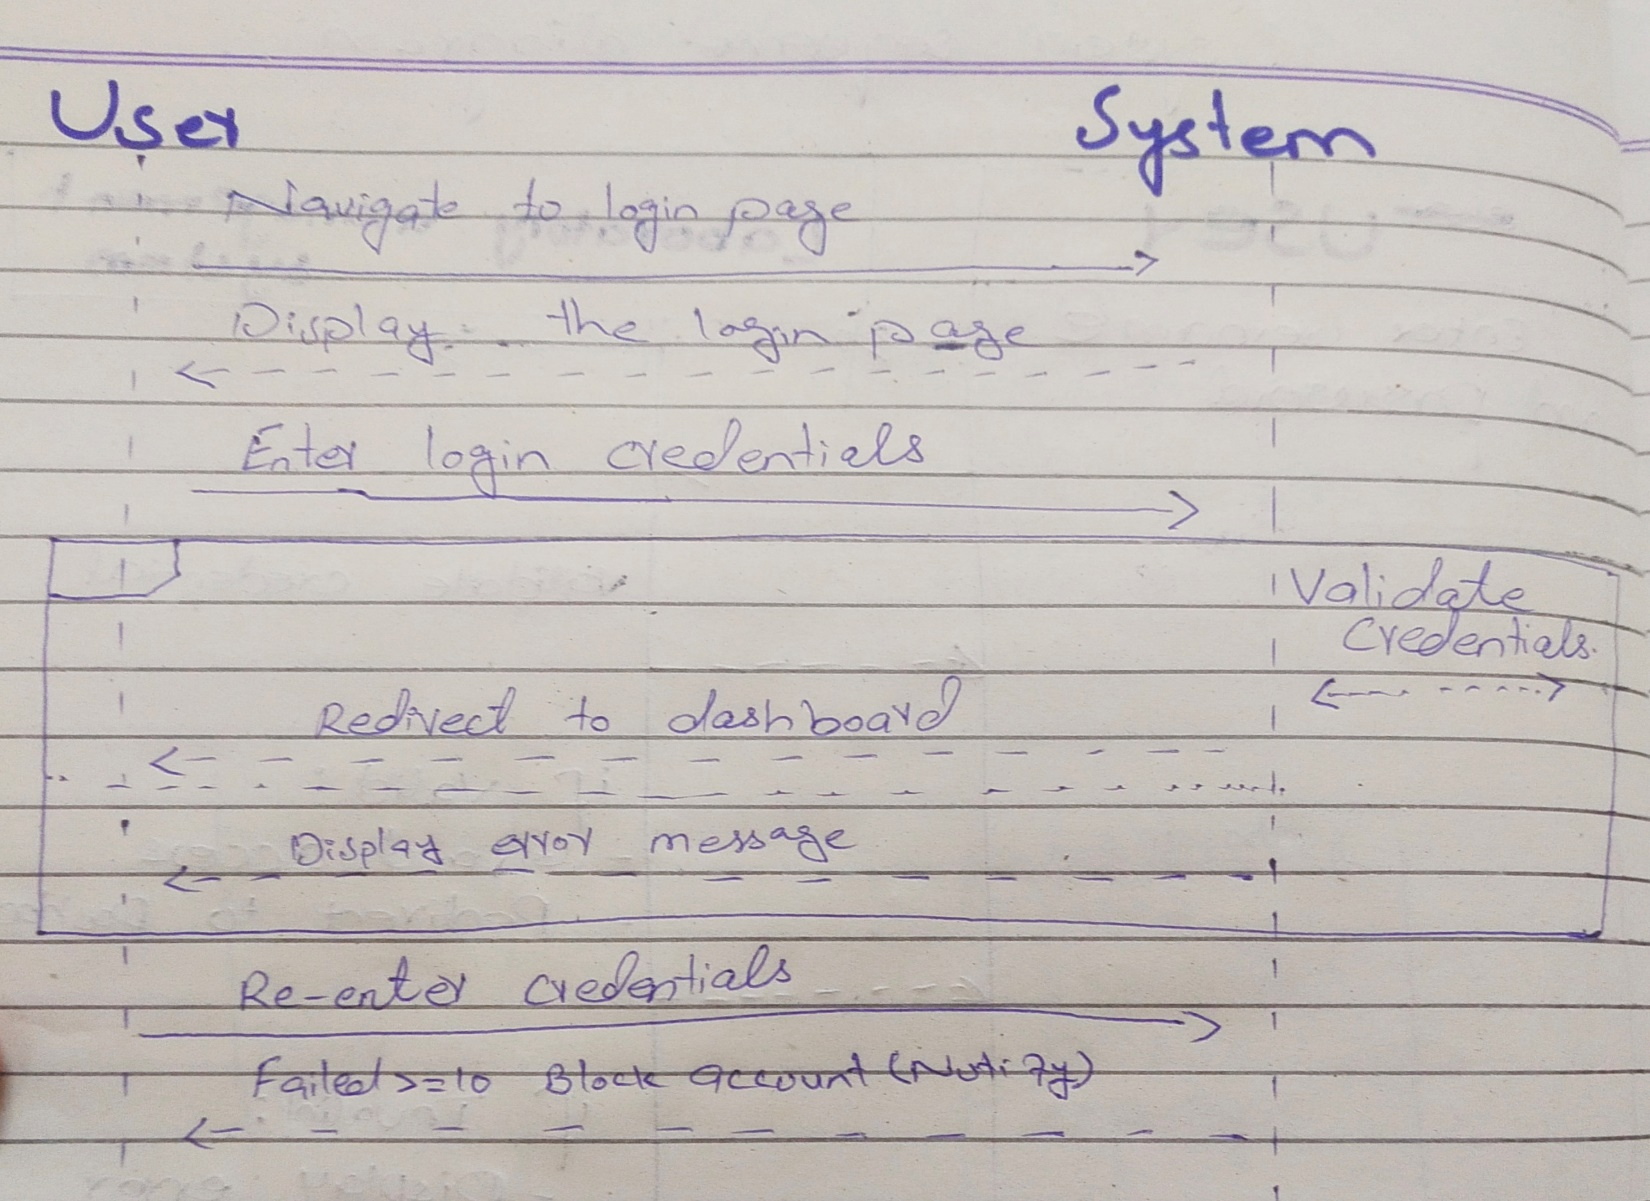 User
System
Navigate to login page
Display the login page
Enter login credentials
Validate
Credentials.
Redirect to dashboard
Display error message
Re-enter credentials
Failed >=10 Block account (Notify)